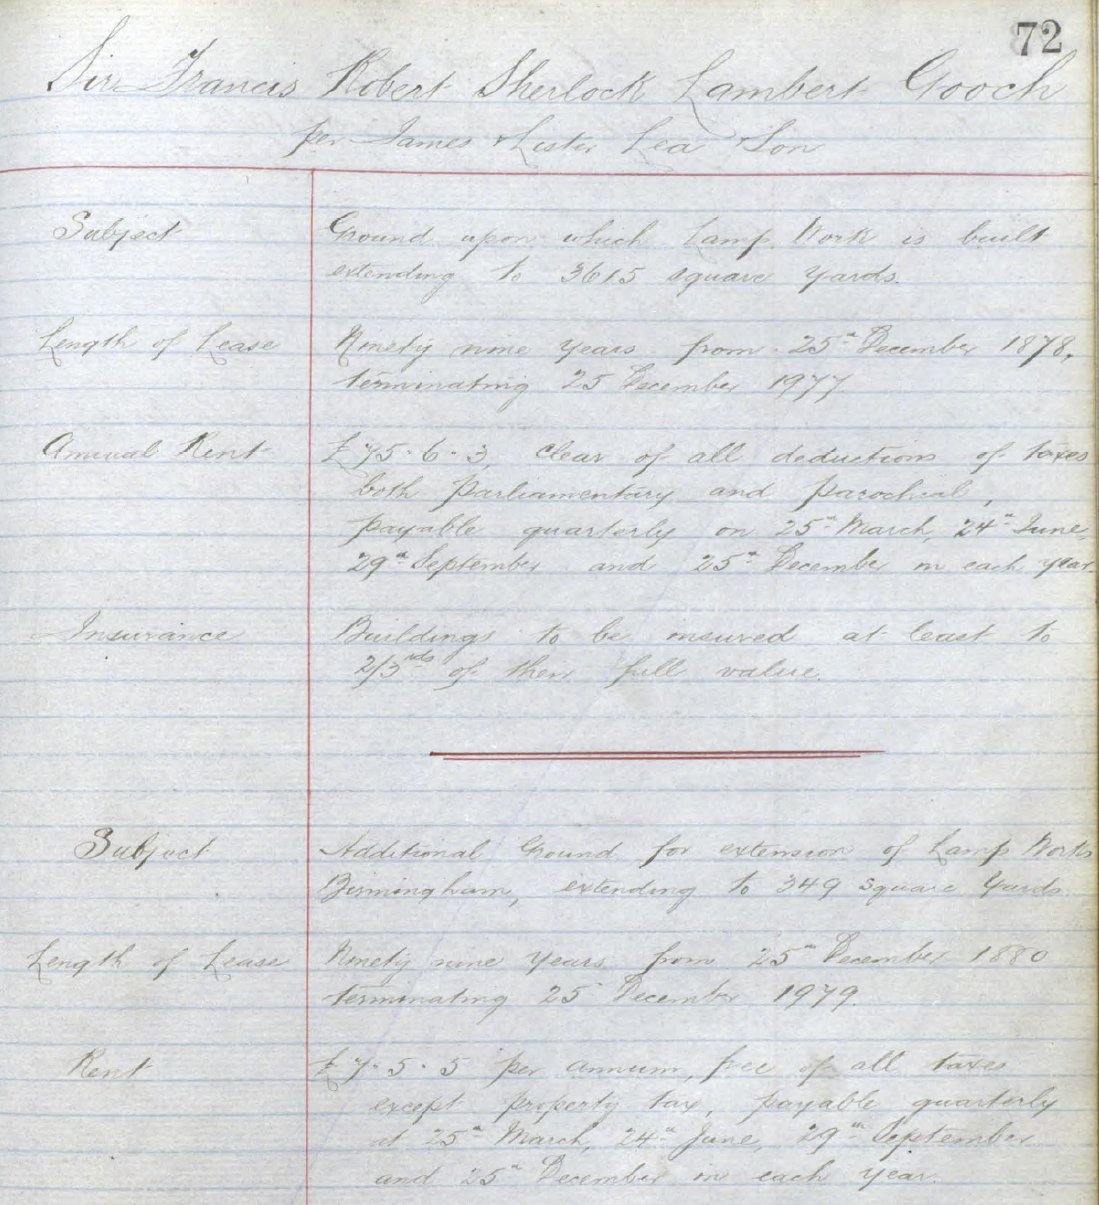 72
Sir Francis Robert Sherlock Lambert Gooch
per James & Lister Lea & Son
Subject
Ground upon which Lamp Work is built
extending to 3615 square yards.
Length of Lease
Ninety nine years from 25th December 1878,
terminating 25 December 1977
Annual Rent
£75.6.3, clear of all deductions of taxes
both Parliamentary and parochial,
payable quarterly on 25th March, 24th June,
29th September and 25th December in each year.
Insurance
Buildings to be insured at least to
2/3rds of their full value.
Subject
Additional Ground for extension of Lamp Works
Birmingham, extending to 349 square yards
Length of Lease
Ninety nine years from 25th December 1880
terminating 25 December 1979.
Rent
£7.5.5 per annum, free of all taxes
except property tax, payable quarterly
at 25th March, 24th June, 29th September
and 25th December in each year.